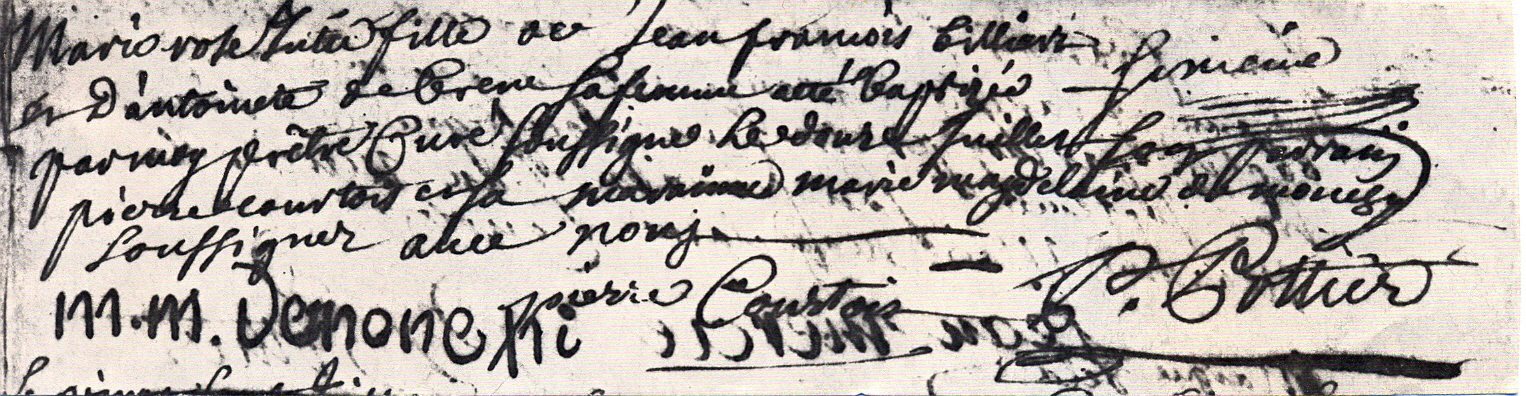 Marie rose fille de Jean françois tillier
et D'antoinete de sa femme atté baptizée
par moy prêtre Curé soussigné Le douze juillet son parrain
pierre courtois et sa marainne marie magdelaine de
soussignez avec nous
m.m. Demone pierre Courtois P. Pottier